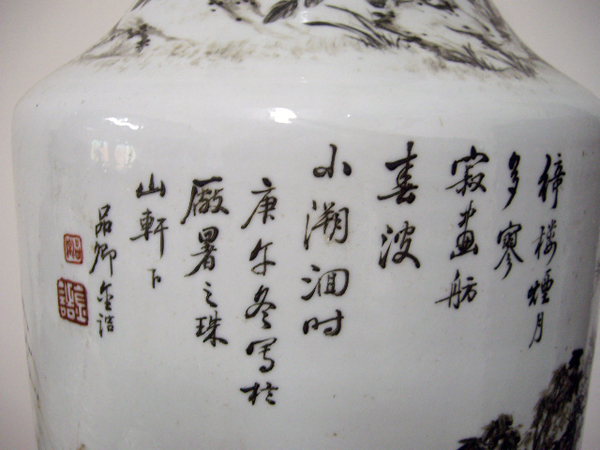 倚楼煙月
多寥
寂畫舫
春波
小溯洄时
庚午冬寫於
廠署之珠
山軒下
品卿金誥